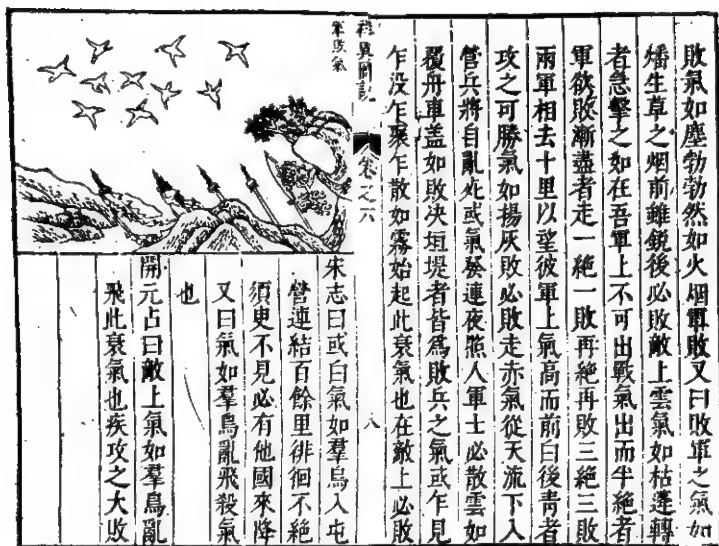 敗氣如塵勃勃然如火烟軍敗又曰敗軍之氣如
燔生草之烟前雖鋭後必敗敵上雲氣如枯蓬轉
者急擊之如在吾軍上不可出戰氣出而半絕者
軍欲敗漸盡者走一絕一敗再絕再敗三絕三敗
兩軍相去十里以望彼軍上氣高而前白後青者
攻之可勝氣如揚灰敗必敗走赤氣從天流下入
營兵將自亂死或氣發連夜照人軍士必散雲如
覆舟車盖如敗决垣堤者皆為敗兵之氣或乍見
乍没乍聚乍散如霧始起此衰氣也在敵上必敗
祥異圖説
卷之六
八
軍敗氣
宋志曰或白氣如羣鳥入屯
營連結百餘里徘徊不絕
須臾不見必有他國來降
又曰氣如羣鳥亂飛殺氣
也
開元占曰敵上氣如羣鳥亂
飛此衰氣也疾攻之大敗